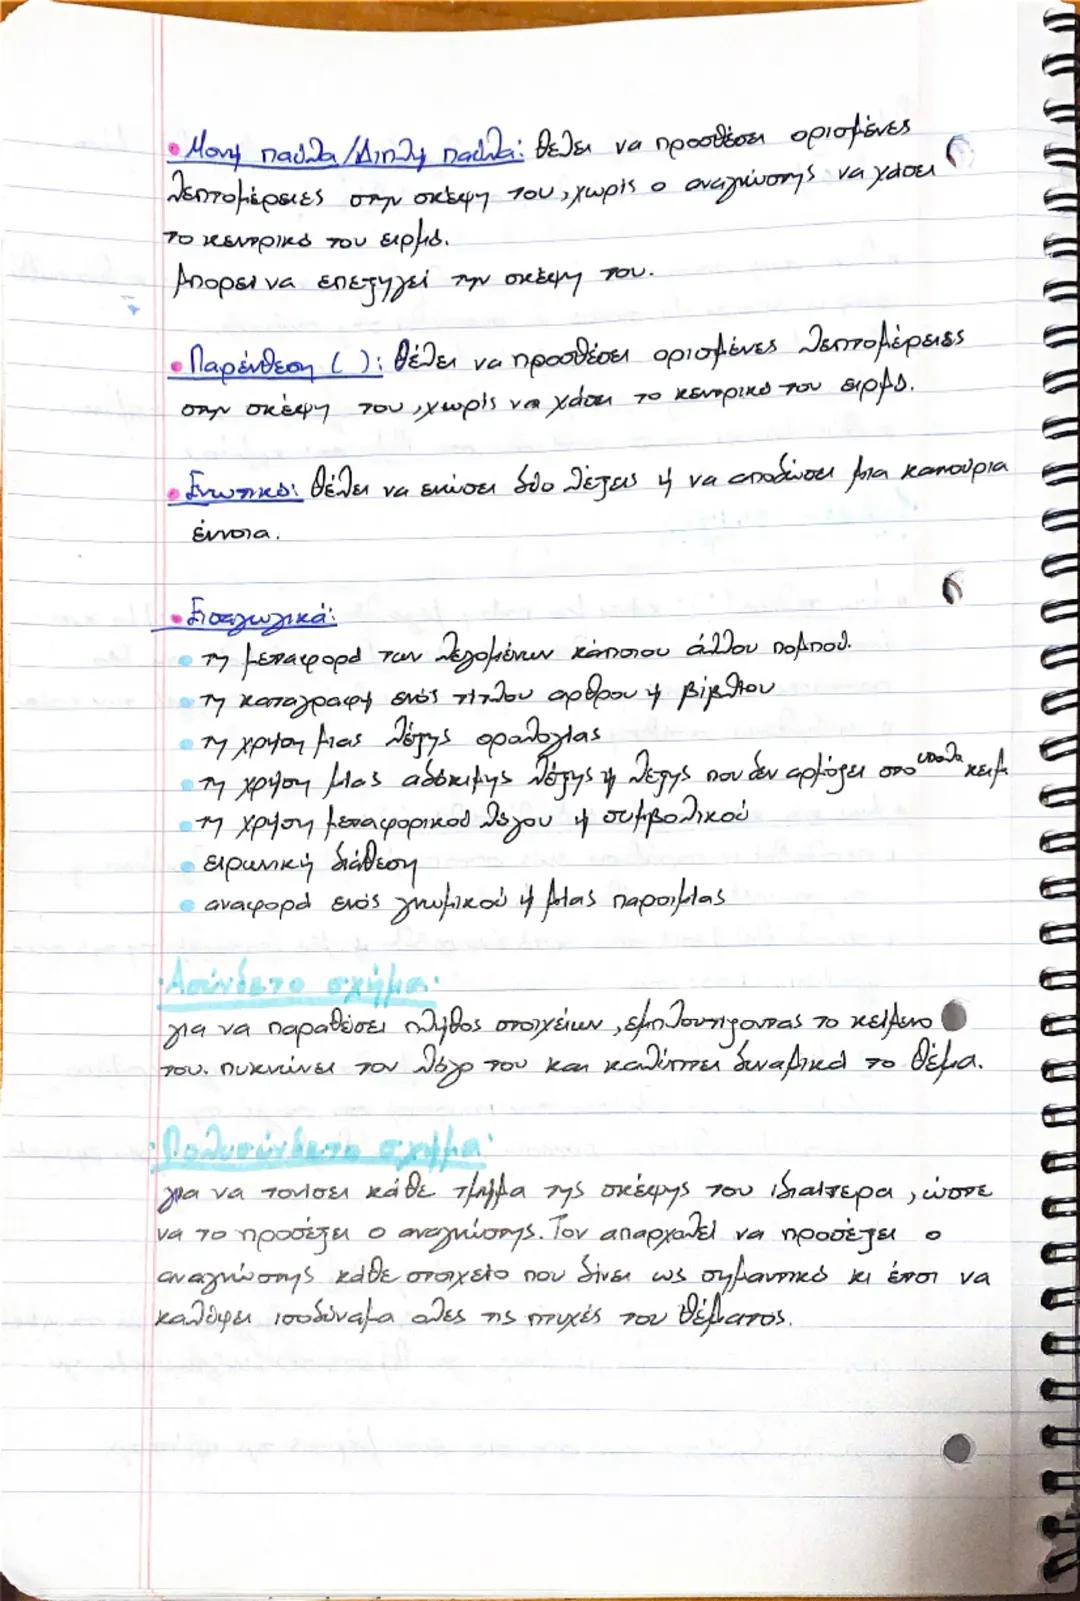 • Μονή παύλα/Διπλή παύλα: θέλει να προσθέσει ορισμένες
λεπτομέρειες στην σκέψη του, χωρίς ο αναγνώστης να χάσει
το κεντρικό του ειρμό.
Μπορεί να επεξηγεί την σκέψη του.
• Παρένθεση ( ): θέλει να προσθέσει ορισμένες λεπτομέρειες
στην σκέψη του, χωρίς να χάσει το κεντρικό του ειρμό.
• Ενωτικό: θέλει να ενώσει δύο λέξεις ή να αποδώσει μια καινούρια
έννοια.
• Εισαγωγικά:
• τη μεταφορά των λεγομένων κάποιου άλλου πομπού.
• τη καταγραφή ενός τίτλου αρθρου ή βιβλίου
• τη χρήση μιας λέξης ορολογίας
• τη χρήση μιας αδόκιμης λέξης ή λέξης που δεν αρμόζει στο υπόλ κειμ
• τη χρήση μεταφορικού λόγου ή συμβολικού
• ειρωνική διάθεση
• αναφορά ενός γνωμικού ή μιας παροιμίας
·Ασύνδετο σχήμα·
για να παραθέσει πλήθος στοιχείων, εμπλουτίζοντας το κείμενο
του. πυκνώνει τον λόγο του και καλύπτει δυναμικά το θέμα.
·Πολυσύνδετο σχήμα·
για να τονίσει κάθε τμήμα της σκέψης του ιδιαίτερα, ώστε
να το προσέξει ο αναγνώστης. Τον απαρχολεί να προσέξει ο
αναγνώστης κάθε στοιχείο που δίνει ως σημαντικό κι έτσι να
καλύψει ισοδύναμα όλες τις πτυχές του θέματος.